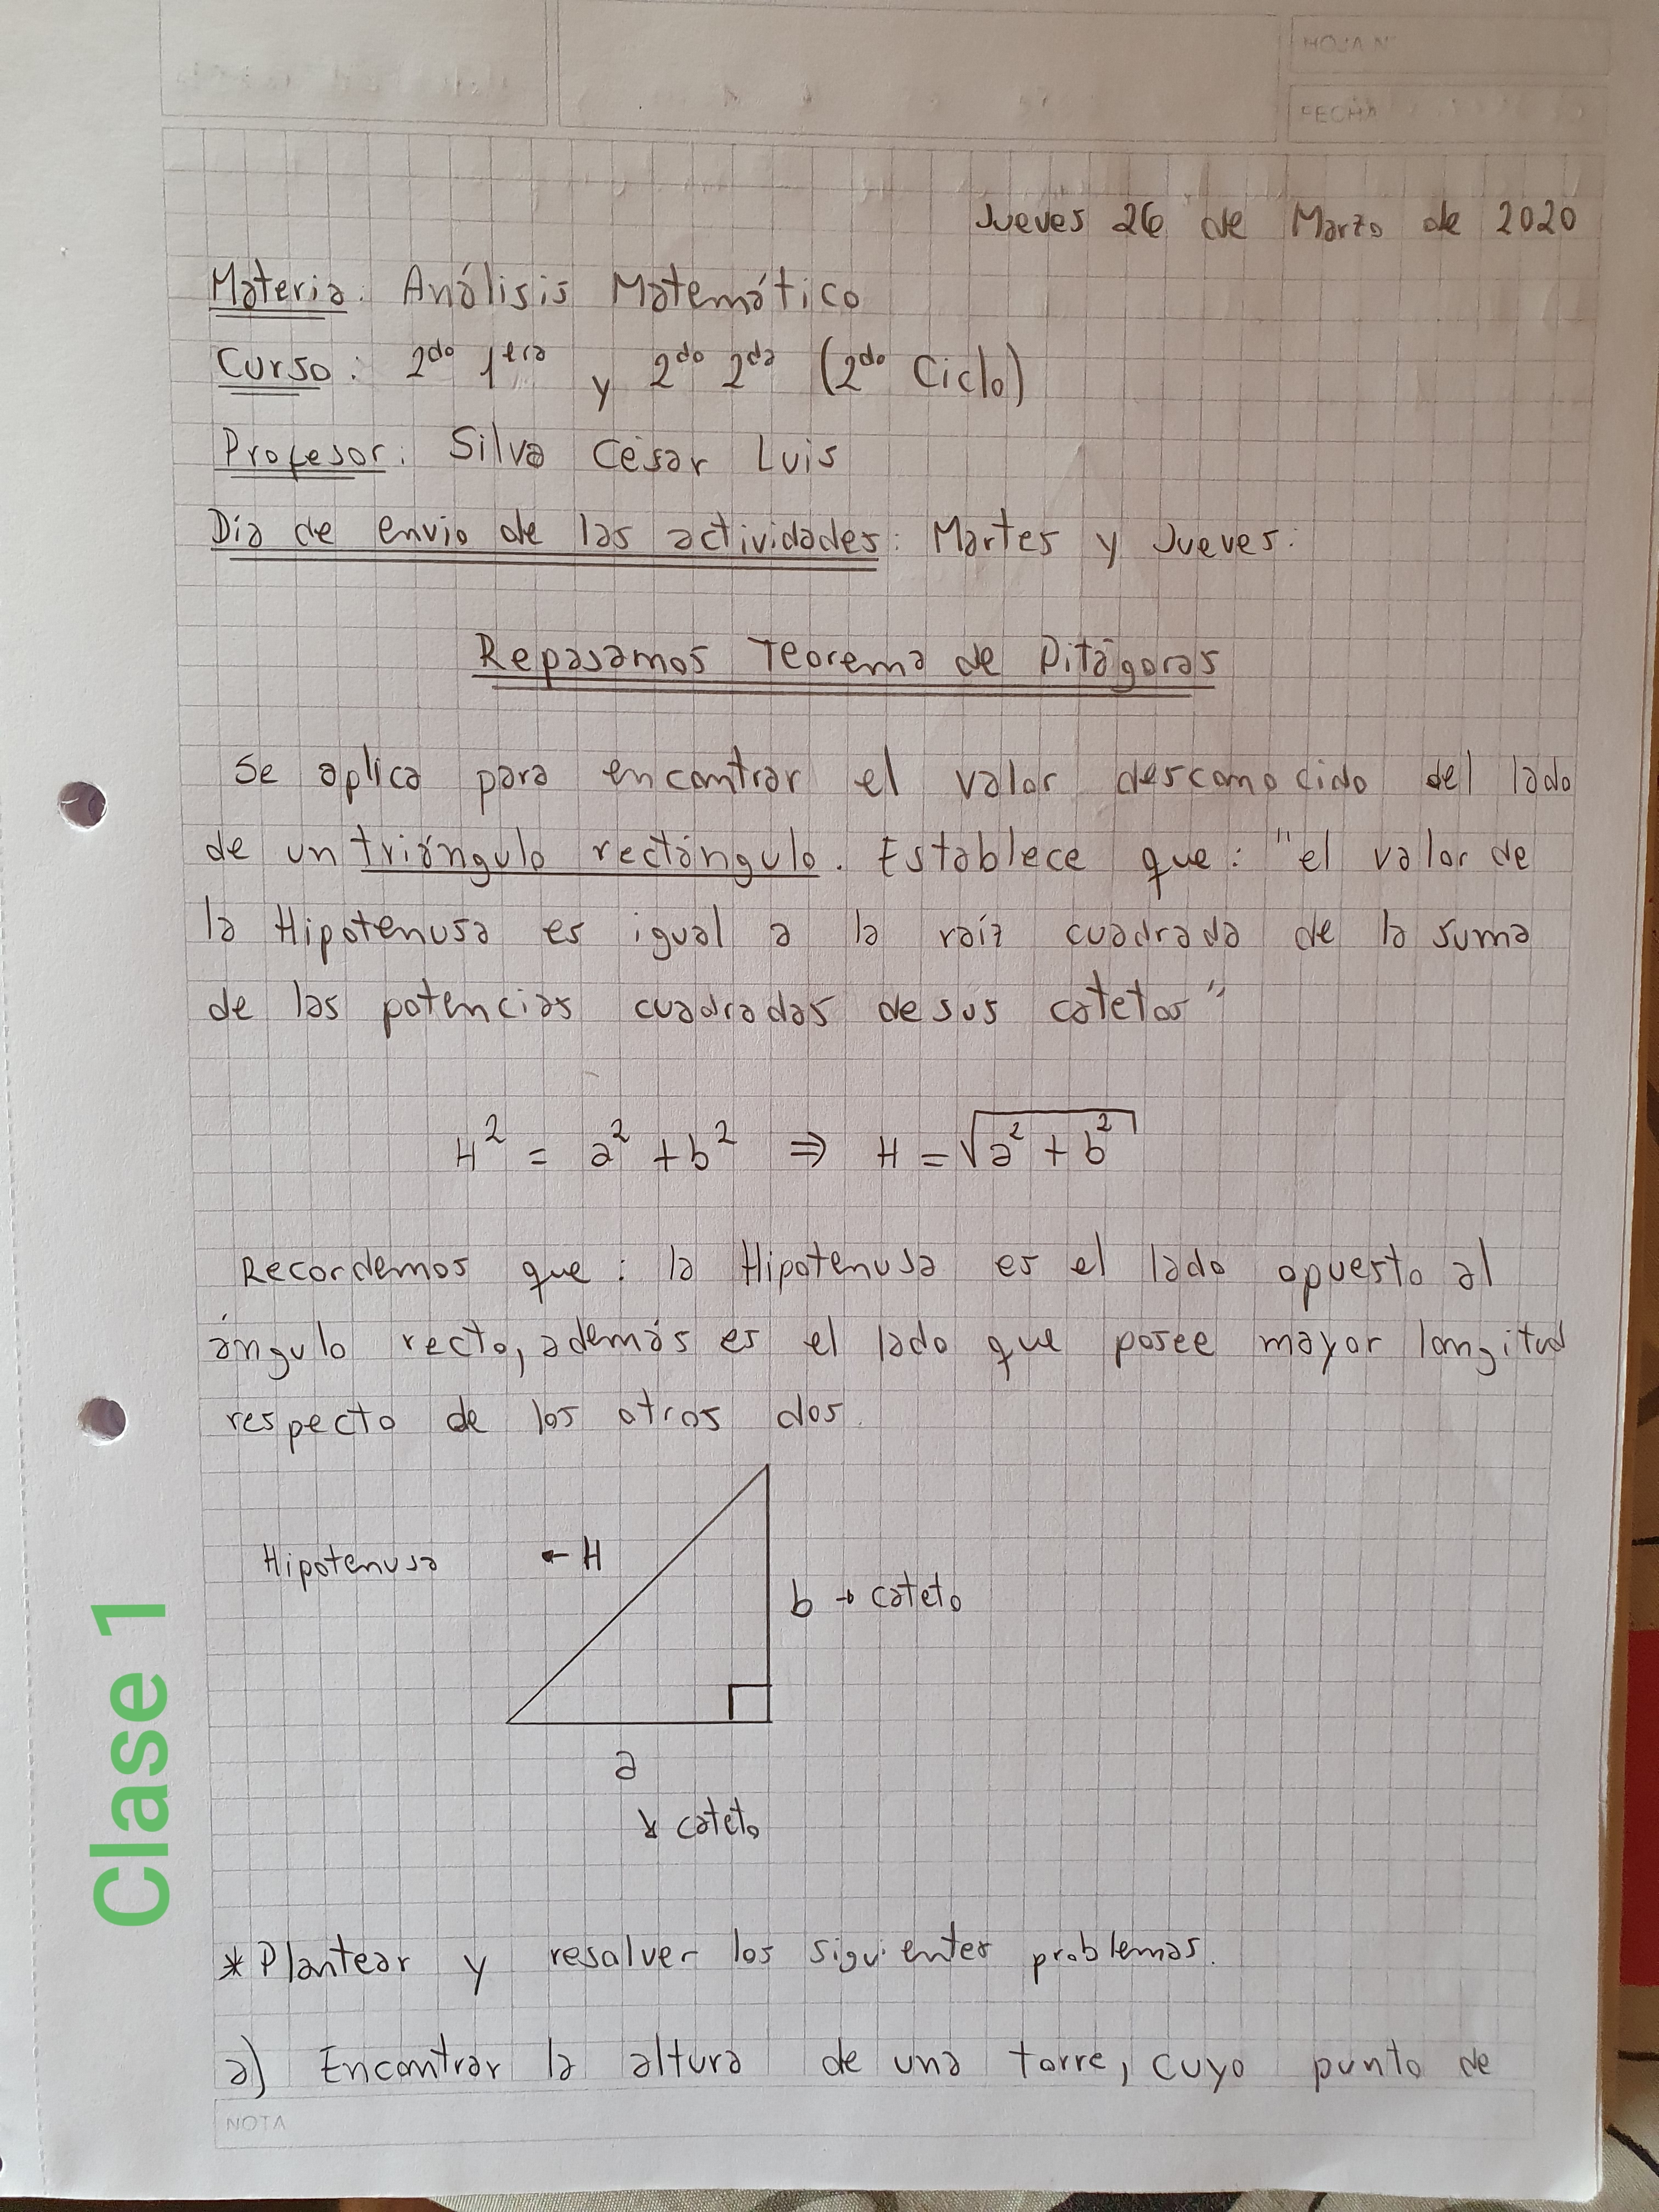 HOJA Nº
FECHA
Jueves 26 de Marzo de 2020
Materia: Análisis Matemático
Curso: 2do 1era y 2do 2da (2do Ciclo)
Profesor: Silva César Luis
Dia de envio de las actividades: Martes y Jueves:
Repasamos Teorema de Pitágoras
Se aplica para encontrar el valor desconocido del lado
de un triángulo rectángulo. Establece que: "el valor de
la Hipotenusa es igual a la raíz cuadrada de la suma
de las potencias cuadradas de sus catetos"
H² = a² + b² ⇒ H = √a² + b²
Recordemos que: la Hipotenusa es el lado opuesto al
ángulo recto, además es el lado que posee mayor longitud
respecto de los otros dos.
Hipotenusa ← H
b → cateto
a
↘ cateto
Clase 1
* Plantear y resolver los siguientes problemas.
a) Encontrar la altura de una torre, cuyo punto de
NOTA